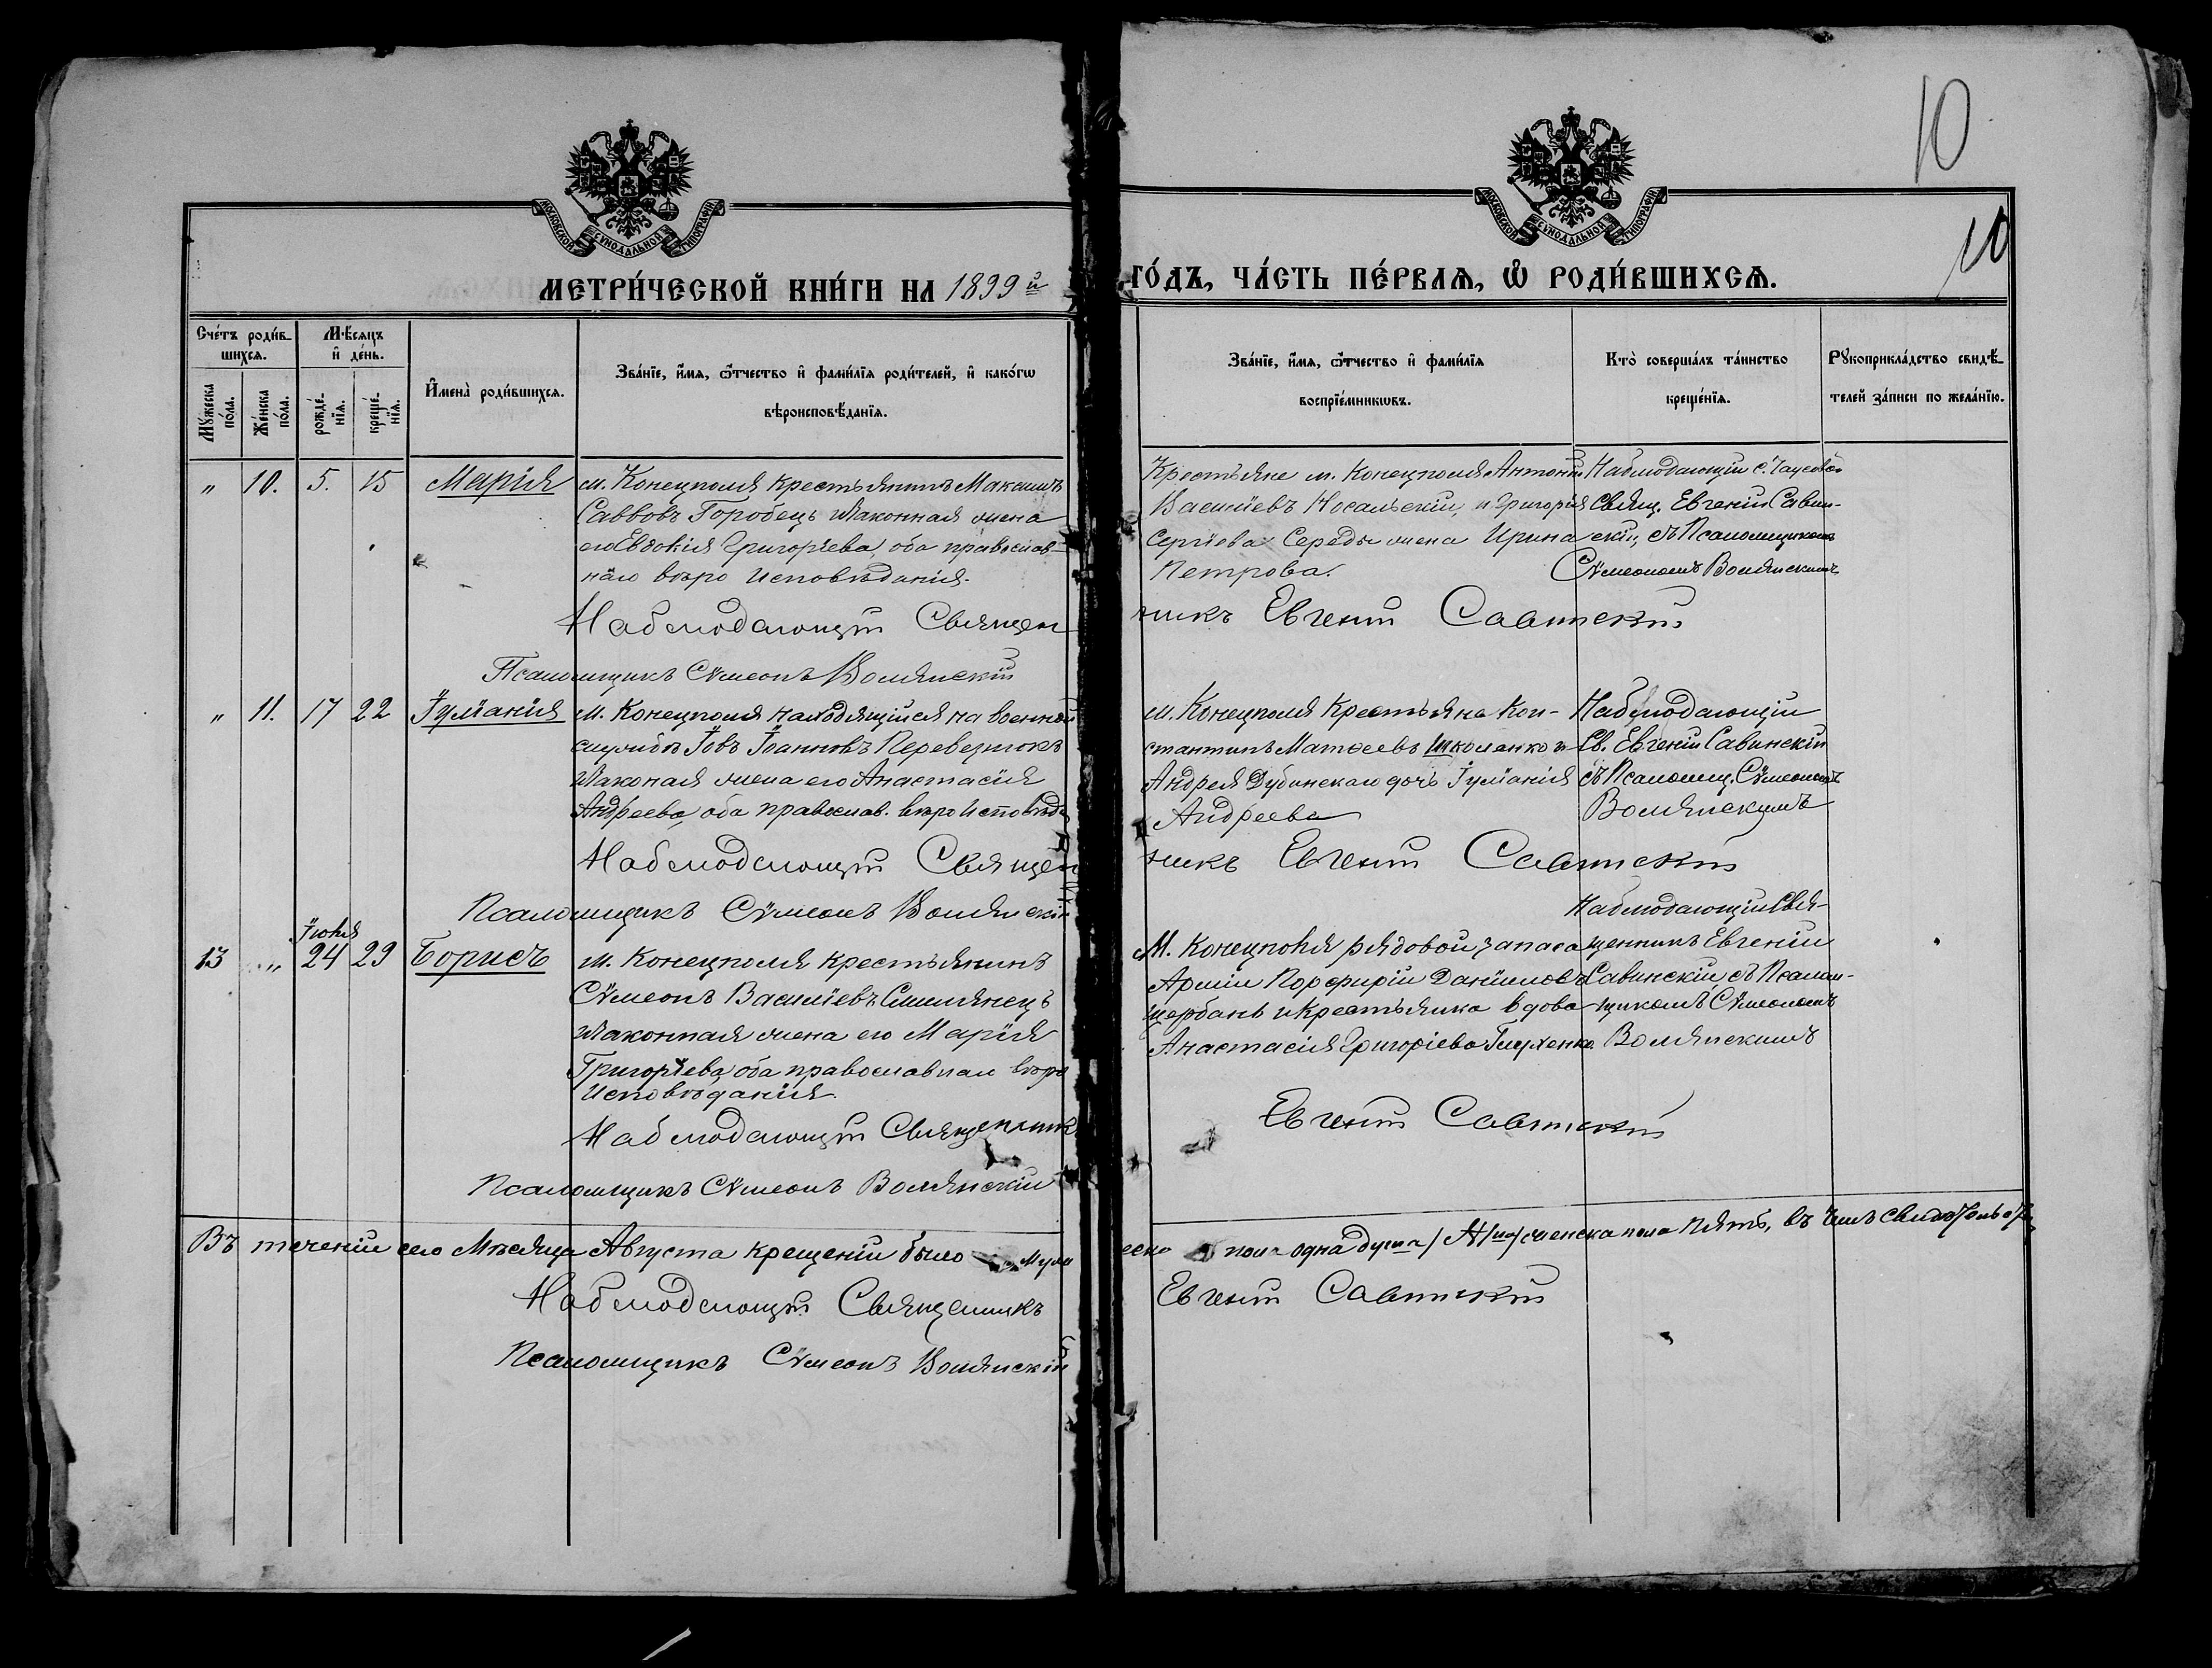 10
10
МОСКОВСКОЙ СУНОДАЛЬНОЙ ТИПОГРАФІИ
МОСКОВСКОЙ СУНОДАЛЬНОЙ ТИПОГРАФІИ
МЕТРИ́ЧЕСКОЙ КНИ́ГИ НА 1899й
ГО́ДЪ, ЧА́СТЬ ПЕ́РВАѦ, Ѽ РОДИ́ВШИХСѦ.
Сче́тъ роди́в-
шихсѧ.
Мѣсяцъ
и де́нь.
Мꙋ́жеска
по́ла.
Же́нска
по́ла.
рожде́-
нїѧ.
креще́-
нїѧ.
Имена̀ роди́вшихсѧ.
Зва́нїе, и́мѧ, ѻ́тчество и фами́лїѧ роди́телей, и како́гѡ
вѣроисповѣ́данїѧ.
Зва́нїе, и́мѧ, ѻ́тчество и фами́лїѧ
воспрїе́мникѡвъ.
Кто̀ соверша́лъ та́инство
креще́нїѧ.
Рꙋкоприкла́дство свидѣ́-
телей за́писи по жела́нїю.
„ 10. 5. 15 Марія
м. Конецполя крестьянинъ Максимъ
Саввовъ Горобецъ и законная жена
его Евдокія Григоріева, оба православ-
наго вѣроисповѣданія.
Крестьяне м. Конецполя Антоній
Василіевъ Носальскій, и Григорія
Сергіева Середы жена Ирина
Петрова.
Наблюдающій с.
Свящ. Евгеній Савин-
скій, съ Псаломщикомъ
Сѵмеономъ Волянскимъ
Наблюдающій Священ
никъ Евгеній Савинскій
Псаломщикъ Сѵмеонъ Волянскій
„ 11. 17 22 Іуліанія
м. Конецполя находящійся на военной
службѣ Іовъ Іоанновъ Перевезнюкъ
и законая жена его Анастасія
Андреева, оба православ. вѣроисповѣд
м. Конецполя Крестьяне Кон-
стантинъ Матѳеевъ Школенко и
Андрея Дубинскаго дочь Іуліанія
Андреева
Наблюдающій
Св. Евгеній Савинскій
съ Псаломщ. Сѵмеономъ
Волянскимъ
Наблюдающій Священ
никъ Евгеній Савинскій
Псаломщикъ Сѵмеонъ Волянскій
Іюня
13 „ 24 29 Борисъ
м. Конецполя крестьянинъ
Сѵмеонъ Василіевъ Смилянецъ
и законная жена его Марія
Григоріева, оба православнаго вѣро
исповѣданія.
М. Конецполя рядовой запаса
Арміи Порфирій Даніиловъ
Щербань и крестьянка вдова
Анастасія Григоріева Глухенко
Наблюдающій Свя-
щенникъ Евгеній
Савинскій съ Псалом-
щикомъ Сѵмеономъ
Волянскимъ
Наблюдающій Священникъ
Евгеній Савинскій
Псаломщикъ Сѵмеонъ Волянскій
Въ теченіи сего Мѣсяца Августа крещеній было Муж
еска пола одна душа женска пола пять, въ чемъ свидѣтельств
Наблюдающій Священникъ
Евгеній Савинскій
Псаломщикъ Сѵмеонъ Волянскій